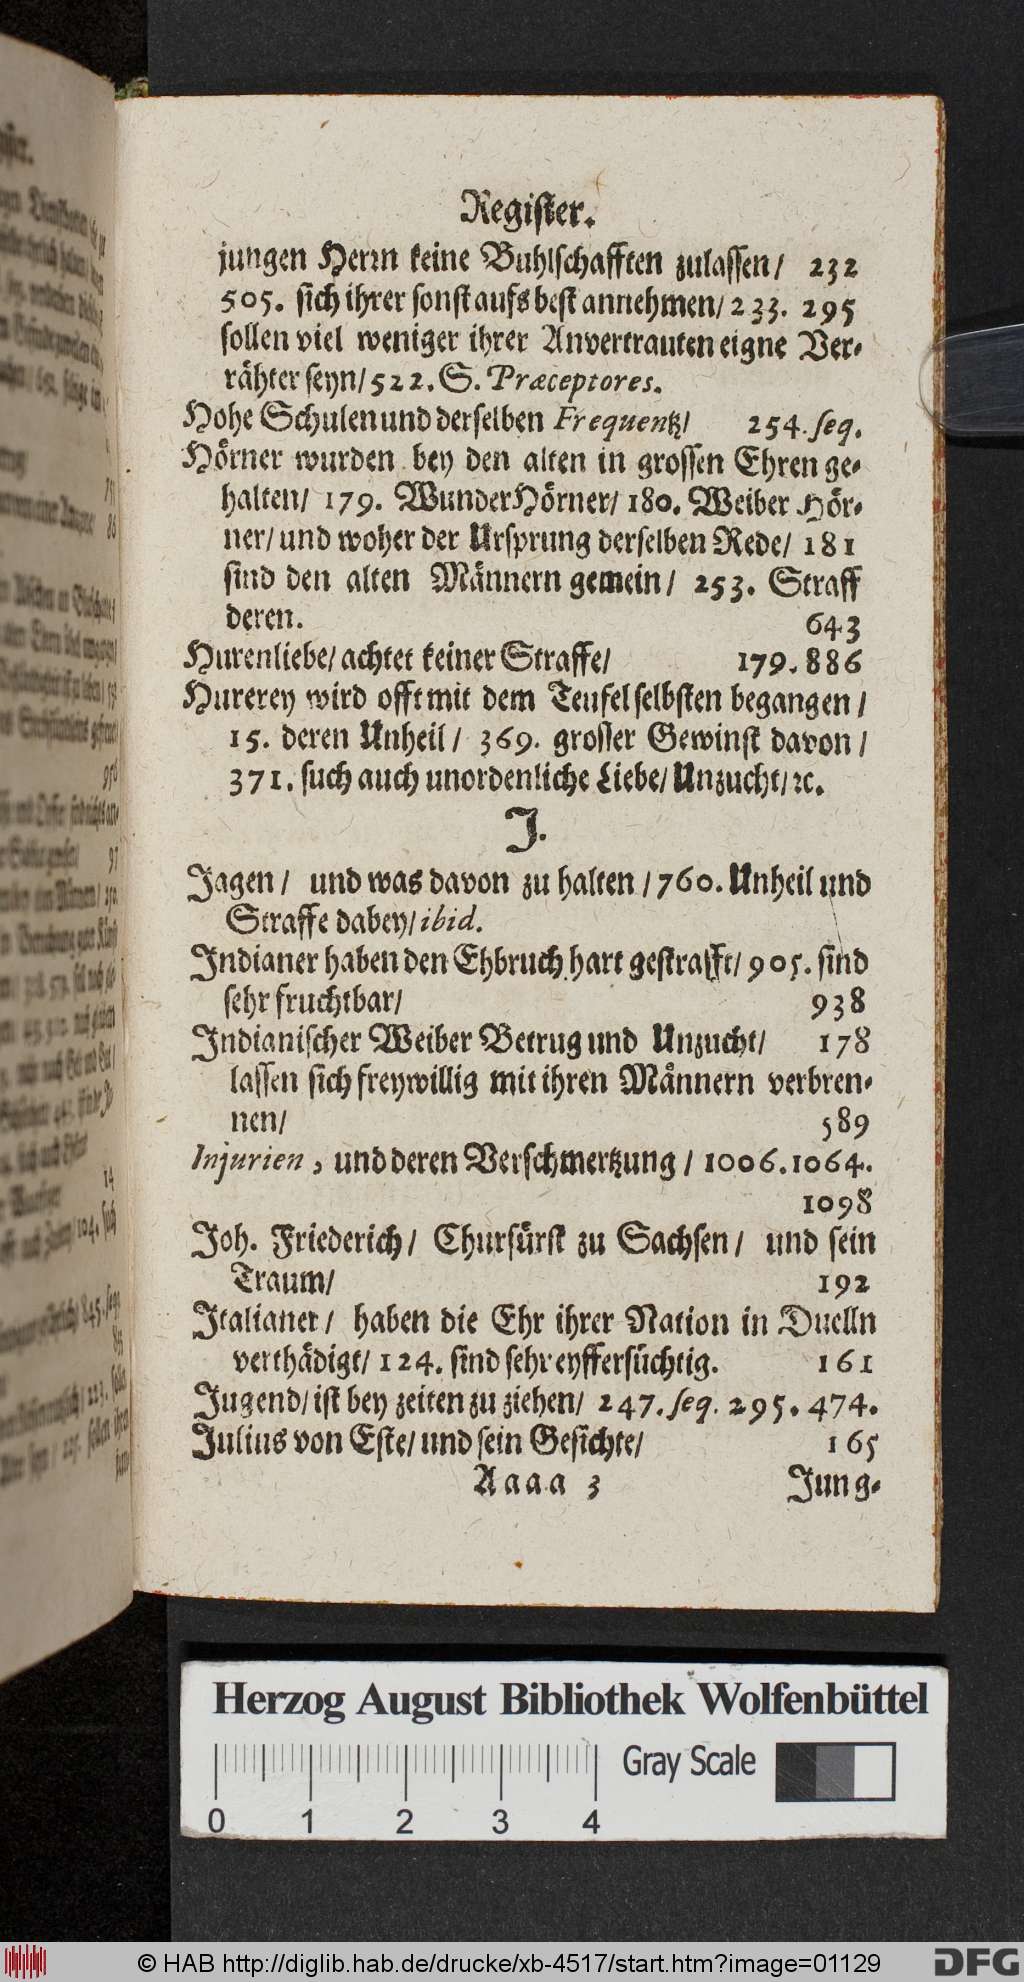 Register.
jungen Herrn keine Buhlschafften zulassen/ 232
505. sich ihrer sonst aufs best annehmen/ 233. 295
sollen viel weniger ihrer Anvertrauten eigne Ver-
rähter seyn/ 522. S. Præceptores.
Hohe Schulen und derselben Frequentz/ 254. seq.
Hörner wurden bey den alten in grossen Ehren ge-
halten/ 179. WunderHörner/ 180. Weiber Hör-
ner/ und woher der Ursprung derselben Rede/ 181
sind den alten Männern gemein/ 253. Straff
deren. 643
Hurenliebe/ achtet keiner Straffe/ 179. 886
Hurerey wird offt mit dem Teufel selbsten begangen/
15. deren Unheil/ 369. grosser Gewinst davon/
371. such auch unordenliche Liebe/ Unzucht/ ꝛc.
J.
Jagen/ und was davon zu halten/ 760. Unheil und
Straffe dabey/ ibid.
Indianer haben den Ehbruch hart gestrafft/ 905. sind
sehr fruchtbar/ 938
Indianischer Weiber Betrug und Unzucht/ 178
lassen sich freywillig mit ihren Männern verbren-
nen/ 589
Injurien, und deren Verschmertzung/ 1006. 1064.
1098
Joh. Friederich/ Chursürst zu Sachsen/ und sein
Traum/ 192
Italianer/ haben die Ehr ihrer Nation in Duelln
verthädigt/ 124. sind sehr eyffersüchtig. 161
Jugend/ ist bey zeiten zu ziehen/ 247. seq. 295. 474.
Julius von Este/ und sein Gesichte/ 165
Aaaa 3 Jung-
Herzog August Bibliothek Wolfenbüttel
Gray Scale
0 1 2 3 4
© HAB http://diglib.hab.de/drucke/xb-4517/start.htm?image=01129
DFG